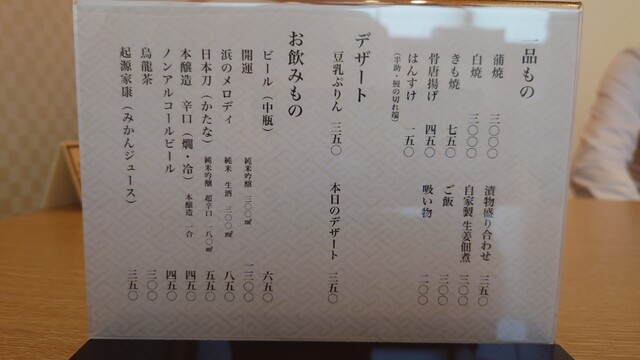 一品もの
蒲焼 三〇〇〇
白焼 三〇〇〇
きも焼 七五〇
骨唐揚げ 四五〇
はんすけ 一五〇
(半助・鰻の切れ端)
漬物盛り合わせ 三五〇
自家製 生姜佃煮 三〇〇
ご飯 三〇〇
吸い物 二〇〇
デザート
豆乳ぷりん 三五〇
本日のデザート 三五〇
お飲みもの
ビール(中瓶) 六五〇
開運 純米吟醸 三〇〇㎖ 一三〇〇
浜のメロディ 純米 生酒 三〇〇㎖ 八五〇
日本刀(かたな) 純米吟醸 超辛口 一八〇㎖ 五五〇
本醸造 辛口(燗・冷) 本醸造 一合 四五〇
ノンアルコールビール 四五〇
烏龍茶 三〇〇
起源家康(みかんジュース) 三五〇